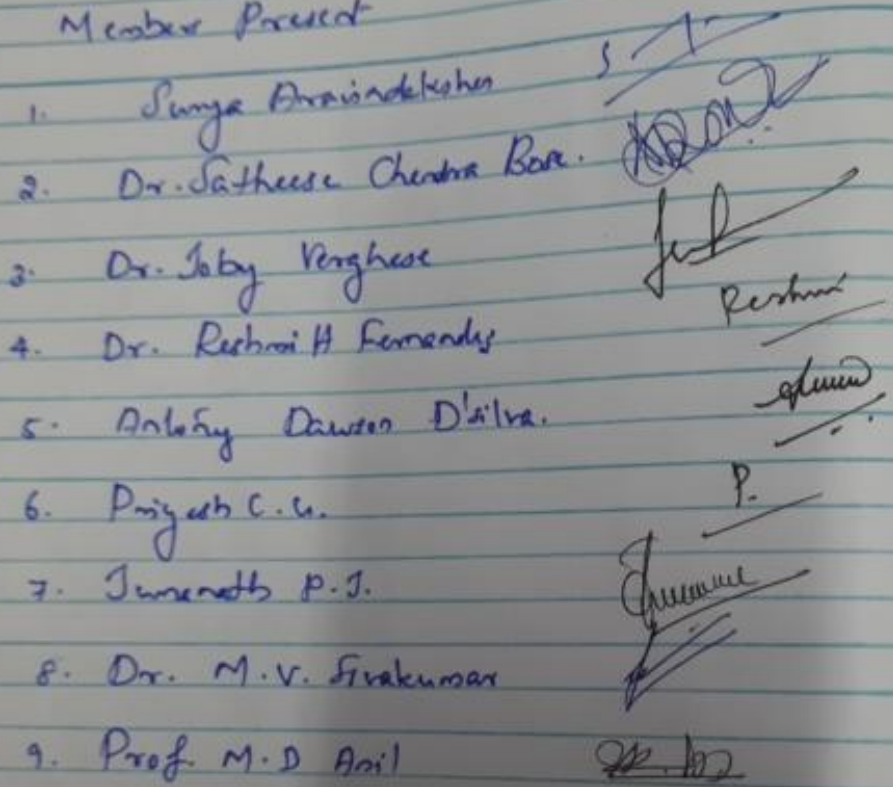 Member Present
1. Surya Aravindakshan
2. Dr. Satheese Chandra Bose.
3. Dr. Joby Verghese
4. Dr. Reshmi H Fernandes Reshmi
5. Antony Dawson D'silva.
6. Priyesh C. G. P.
7. P.J.
8. Dr. M.V. Sivakumar
9. Prof. M.D Anil